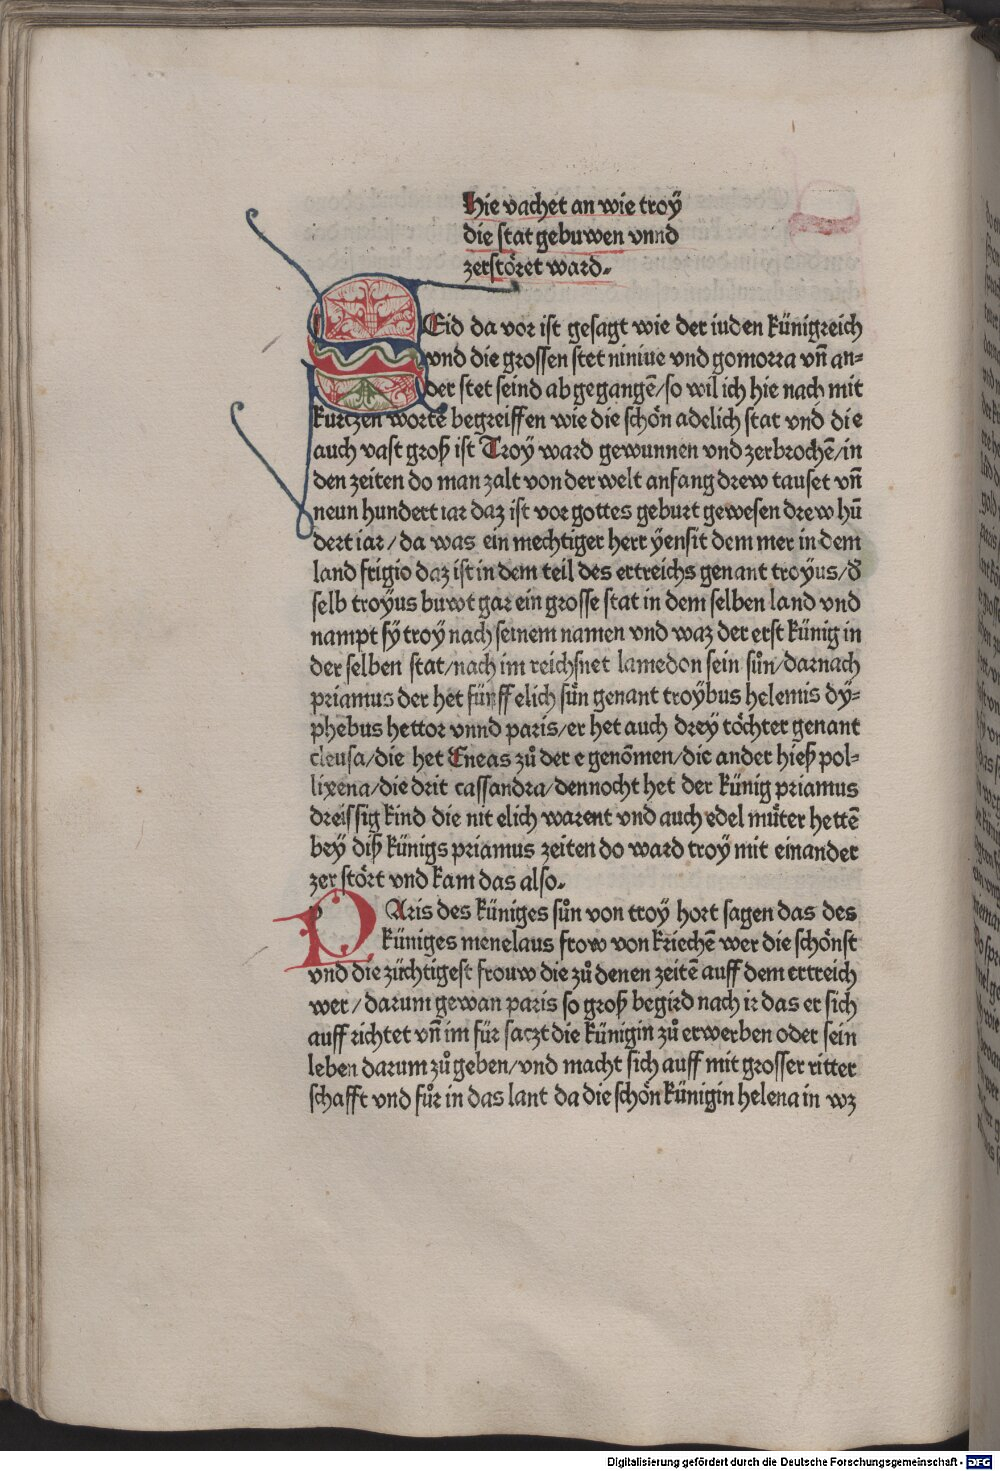 Hie vachet an wie troÿ
die stat gebuwen vnnd
zerstöret ward.
SEid da vor ist gesagt wie der iuden künigreich
vnd die grossen stet niniue vnd gomorra vñ an=
der stet seind ab gegangē/so wil ich hie nach mit
kurtzen wortē begreiffen wie die schön adelich stat vnd die
auch vast groß ist Troÿ ward gewunnen vnd zerbrochē/in
den zeiten do man zalt von der welt anfang drew tauset vñ
neun hundert iar daz ist vor gottes geburt gewesen drew hū
dert iar/da was ein mechtiger herr ÿensit dem mer in dem
land frigio daz ist in dem teil des ertreichs genant troÿus/đ
selb troÿus buwt gar ein grosse stat in dem selben land vnd
nampt sÿ troÿ nach seinem namen vnd waz der erst künig in
der selben stat/nach im reichsnet lamedon sein sůn/darnach
priamus der het fünff elich sůn genant troÿbus helemis dÿ=
phebus hettor vnnd paris/er het auch dreÿ töchter genant
cleusa/die het Eneas zů der e genōmen/die ander hieß pol=
lixena/die drit cassandra/dennocht het der künig priamus
dreissig kind die nit elich warent vnd auch edel můter hettē
beÿ diß künigs priamus zeiten do ward troÿ mit einander
zerstört vnd kam das also.
PAris des küniges sůn von troÿ hort sagen das des
küniges menelaus frow von kriechē wer die schönst
vnd die züchtigest frouw die zů denen zeitē auff dem ertreich
wer/darum gewan paris so groß begird nach ir das er sich
auff richtet vñ im für saczt die künigin zů erwerben oder sein
leben darum zů geben/vnd macht sich auff mit grosser ritter
schafft vnd fůr in das lant da die schön künigin helena in wz
Digitalisierung gefördert durch die Deutsche Forschungsgemeinschaft - DFG